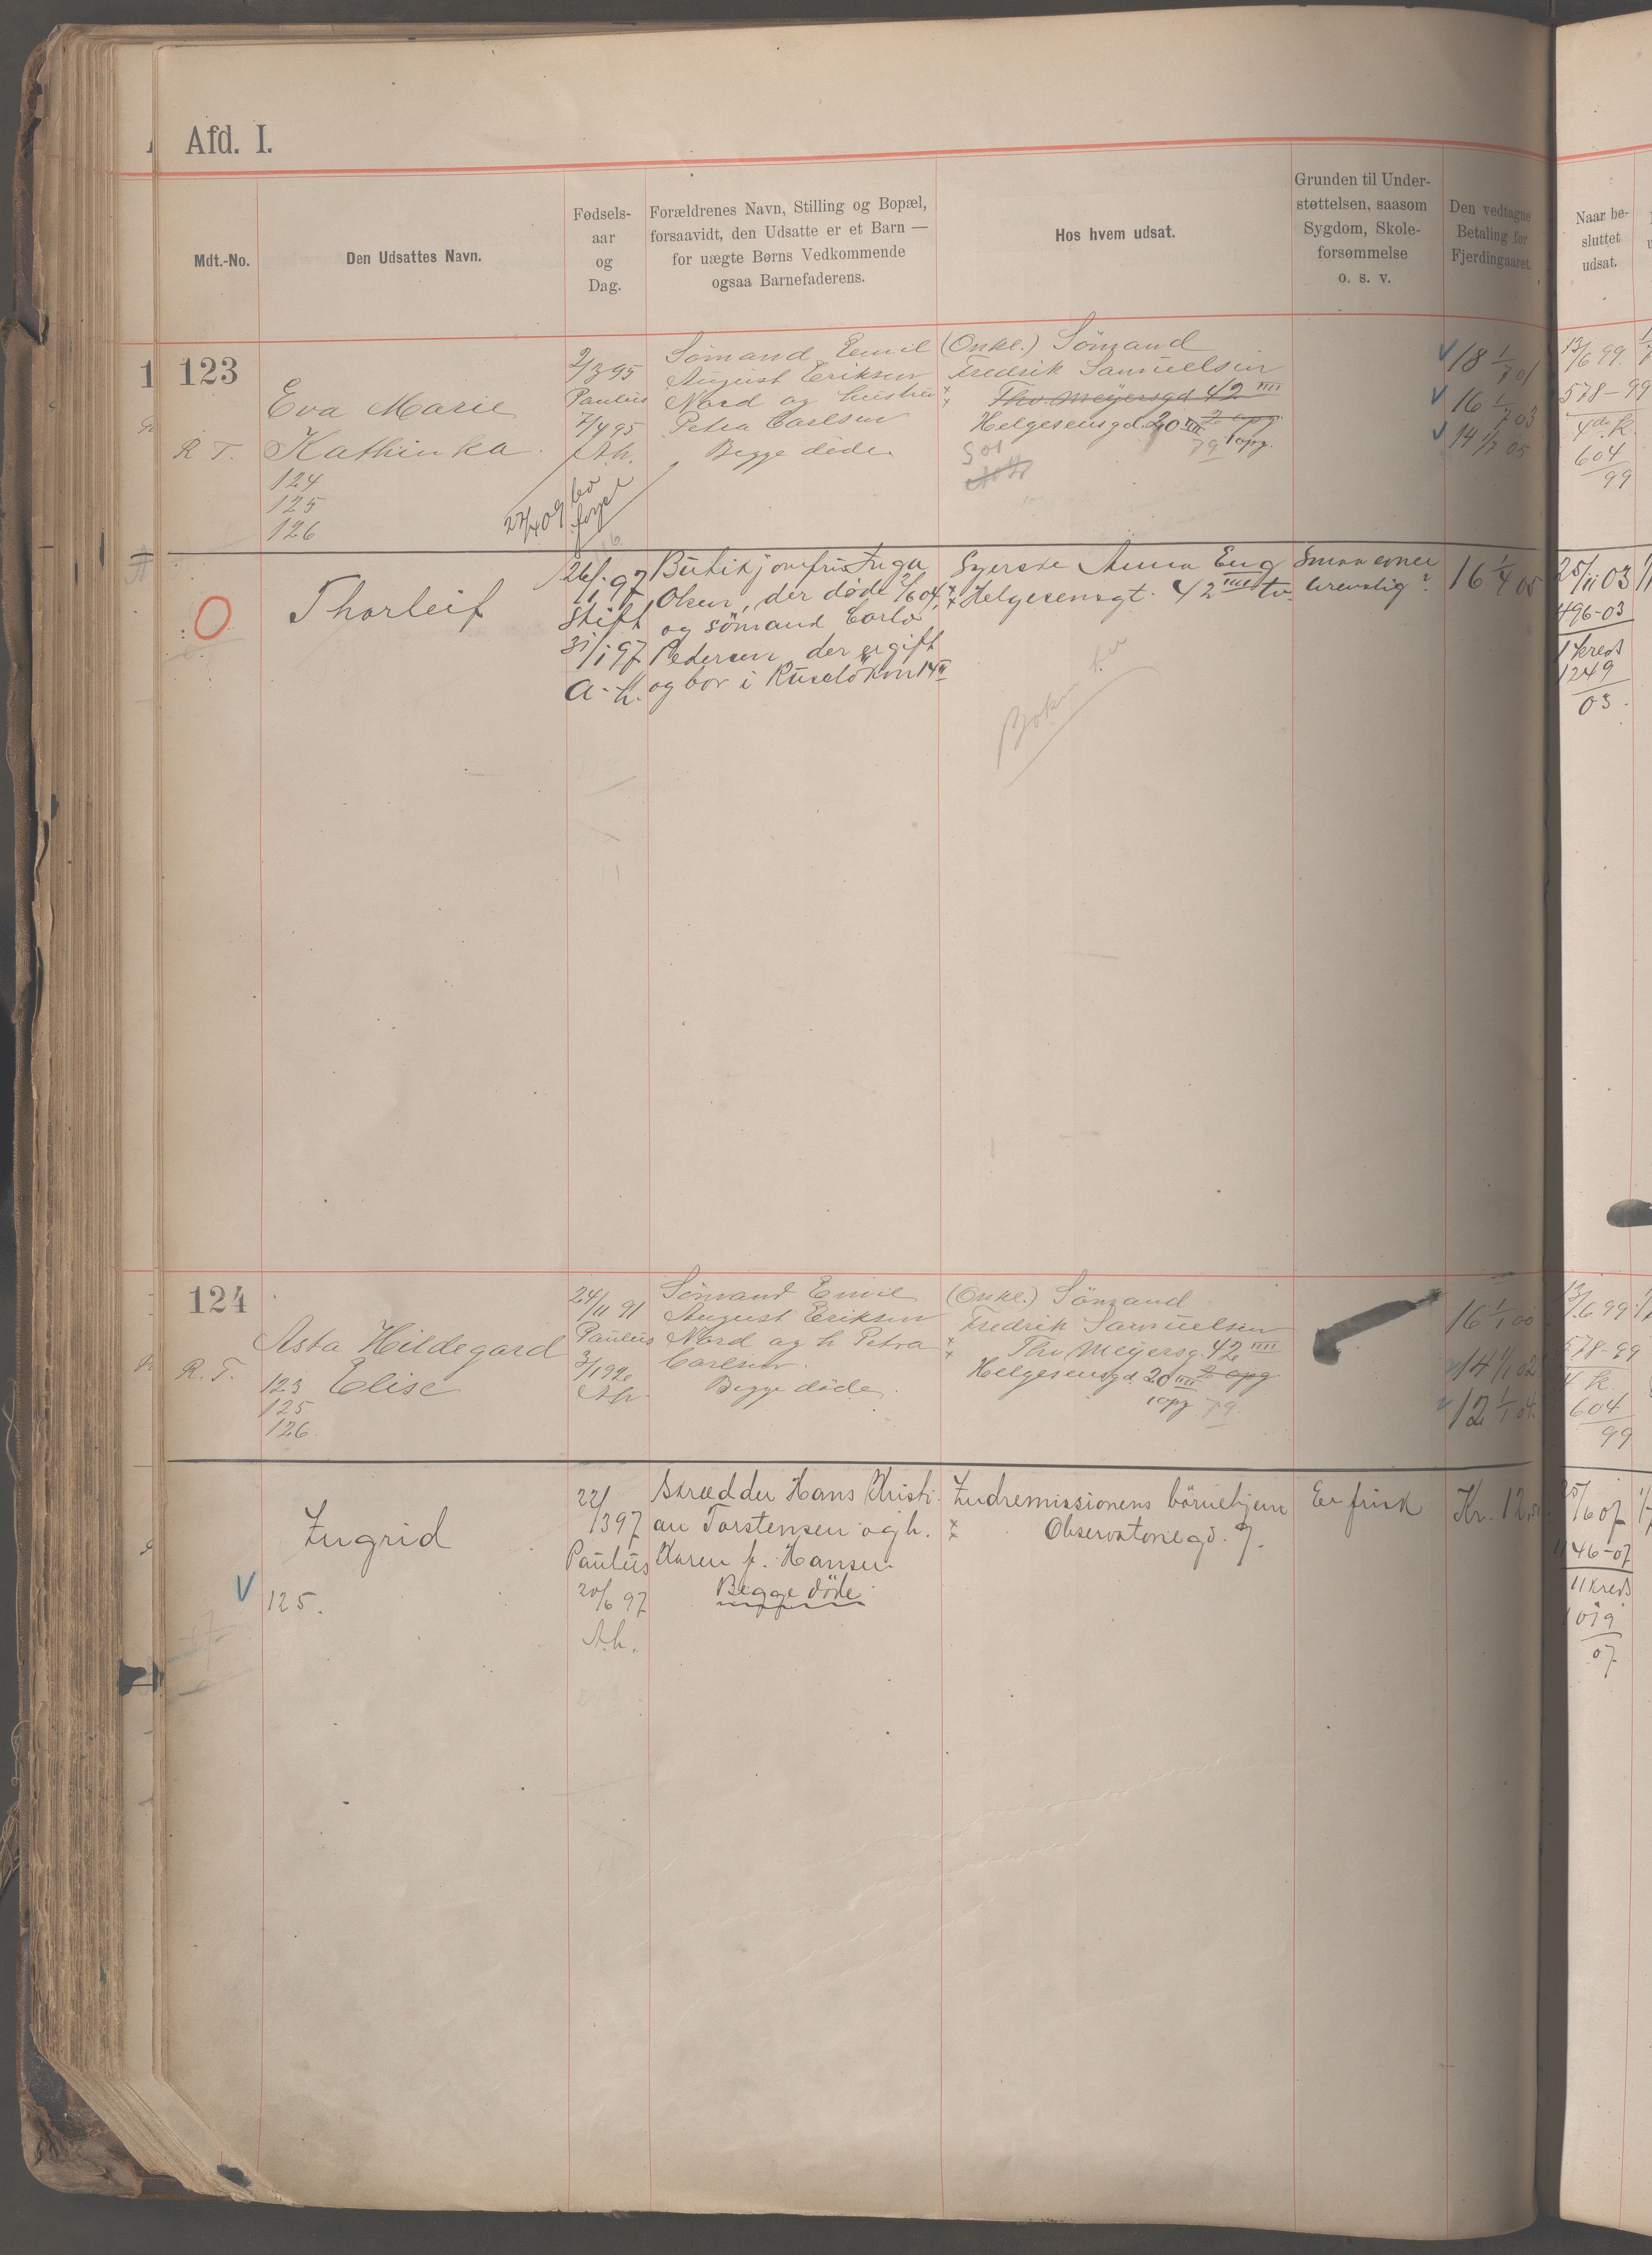 Afd. I.
Mdt.-No.
Den Udsattes Navn.
Fødsels-
aar
og
Dag.
Forældrenes Navn, Stilling og Bopæl,
forsaavidt, den Udsatte er et Barn —
for uægte Børns Vedkommende
ogsaa Barnefaderens.
Hos hvem udsat.
Grunden til Under-
støttelsen, saasom
Sygdom, Skole-
forsømmelse
o. s. v.
Den vedtagne
Betaling for
Fjerdingaaret.
Naar be-
sluttet
udsat.
123
R. T.
Eva Marie
Kathinka.
124
125
126
2/3 95
Paulus
7/4 95
A.h.
Sömand Emil
August Eriksen
Nord og hustru
Petra Carlsen
Begge döde
(Onkel.) Sömand
Fredrik Samuelsen
Thv. Meyersgd. 42 IIII
Helgesensgd. 20 III 2 opg
79 1 opg.
18 1/7 01
16 1/7 03
14 1/7 05
13/6 99.
578-99
4de k.
604
99
O
Thorleif
26/1 97
Stift
31/1 97
a. h.
Butikjomfru Inga
Olsen, der døde 2/6 04,
og sömand Carlo
Pedersen der er gift
og bor i Ruselökvn 14 II
Syerske Anna Eng
Helgesensgt. 42 IIII tv.
16 1/4 05
25/11 03
496-03
1 kreds
1249
03.
124
R. T.
Asta Hildegard
Elise
123
125
126.
24/11 91
Paulus
A.h.
Sömand Emil
August Eriksen
Nord og h Petra
Carlsen.
Begge döde.
(Onkel.) Sömand
Fredrik Samuelsen
Thv. Meyersg. 42 IIII
Helgesensgd. 20 IIII 2 opg
1 opg 79.
16 1/1 00
14 1/1 02
12 1/1 04.
13/6 99
578-99
4 k.
604
99
Ingrid
V
125.
22/
1397
Paulus
20/6 97
A.h.
Skrædder Hans Kristi-
an Torstensen og h.
Karen f. Hansen.
Begge döde.
Indremissionens börnehjem
Observatoriegd. 7.
Er frisk
Kr. 12,50.
25/6 07
46-07
11 kreds
1019
07